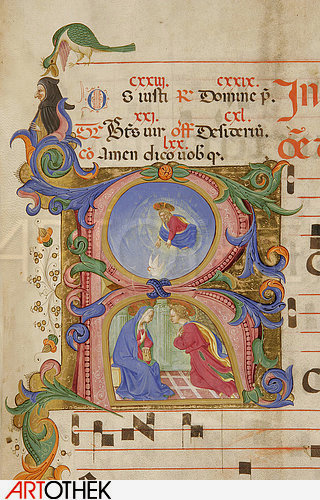 cxxiij. cxxix.
Os iusti R Domine p̄.
xxj. cxl.
Gr Bt̄s uir off Desideriū.
lxx.
Cō Amen dico uob q.
In
ARTOTHEK